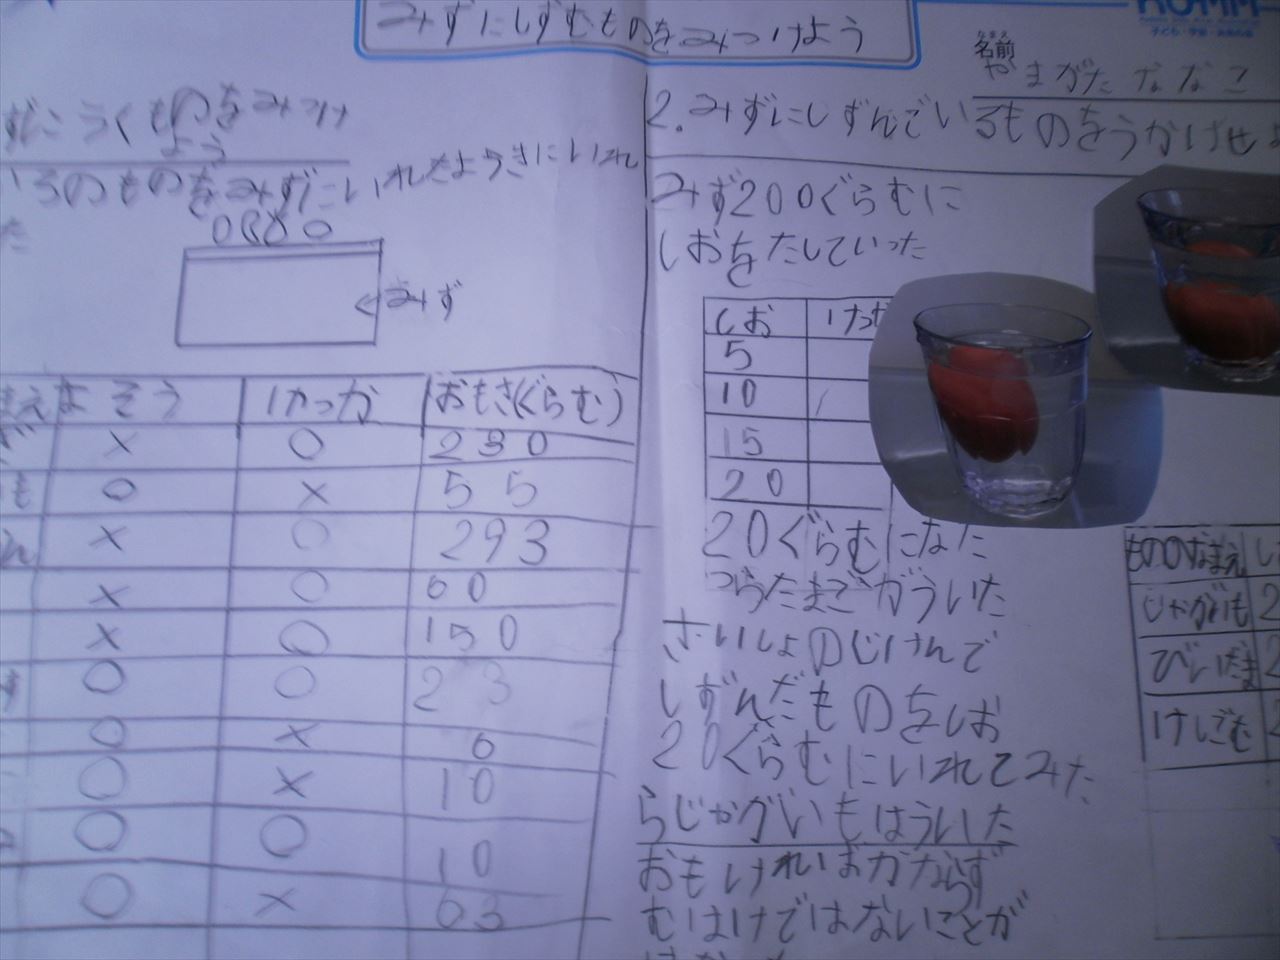 みずにしずむものをみつけよう
名前
なまえ
やまがたななこ
ずにうくものをみつけ
よう
いろのものをみずにいれたようきにいれ
た
みず
まえ よそう けっか おもさ(ぐらむ)
× ○ 230
も ○ × 55
ん × ○ 293
× ○ 60
× ○ 150
○ ○ 23
○ × 6
○ × 10
○ ○ 10
○ × 63
2.みずにしずんでいるものをうかばせ
みず200ぐらむに
しおをたしていった
しお けっか
5
10
15
20
20ぐらむになった
つらたまごがういた
さいしょのじけんで
しずんだものをしお
20ぐらむにいれてみた
らじゃがいもはういた
おもければかならず
むはけではないことが
もののなまえ し
じゃがいも 2
びいだま 2
けしごむ 2